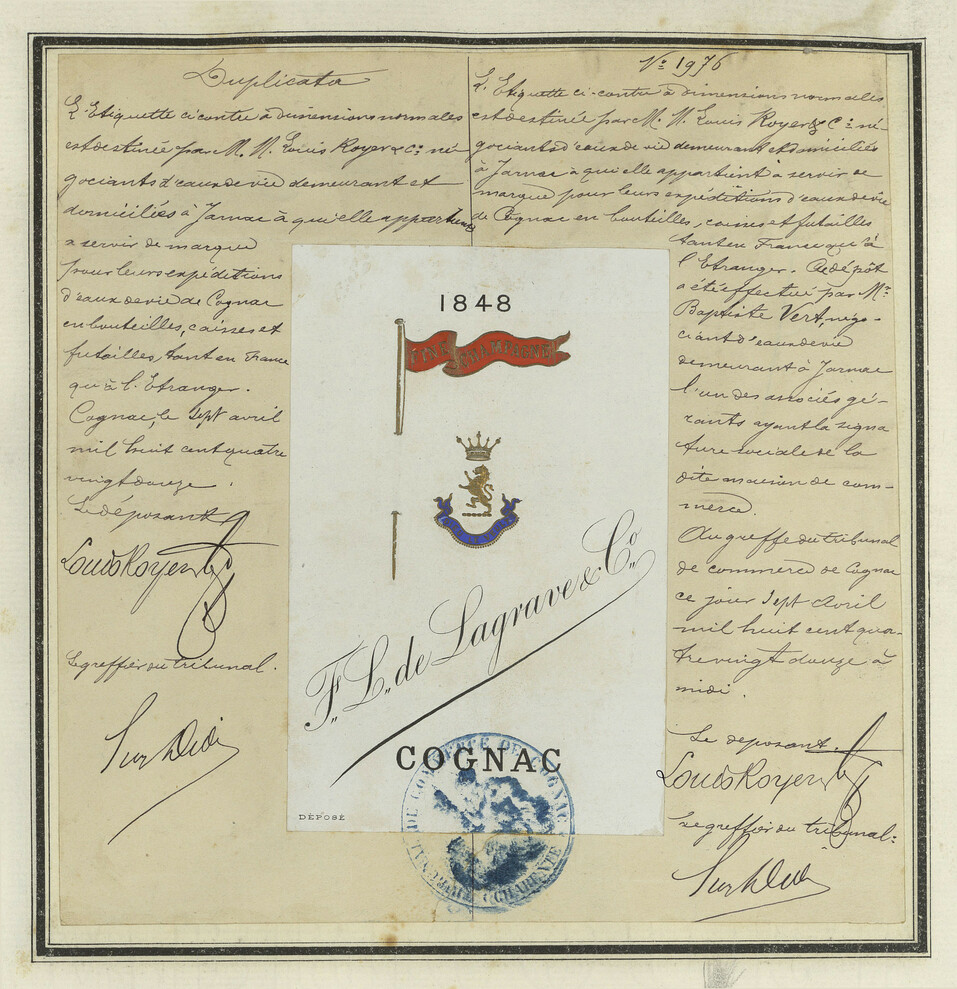 Duplicata
L'Etiquette ci contre à dimensions normales
est destinée par M. M. Louis Royer & Cie né-
gociants d'eaux de vie demeurant et
domiciliés à Jarnac à qui elle appartient
a servir de marque
pour leurs expéditions
d'eaux de vie de Cognac
en bouteilles, caisses et
futailles, tant en France
qu'à l'Etranger.
Cognac, le sept avril
mil huit cent quatre
vingt douze.
Le déposant
Louis Royer & Co
Le greffier du tribunal.
No 1976
L'Etiquette ci-contre à dimensions normales
est destinée par M. M. Louis Royer & Cie né-
gociants d'eaux de vie demeurant et domiciliés
à Jarnac à qui elle appartient à servir de
marque pour leurs expéditions d'eaux de vie
de Cognac en bouteilles, caisses et futailles
tant en France qu'à
l'Etranger. Ce dépôt
a été effectué par Mr
Baptiste Vert, négo-
ciant d'eaux de vie
demeurant à Jarnac
l'un des associés gé-
rants ayant la signa
ture sociale de la
dite maison de com-
merce.
Au greffe du tribunal
de commerce de Cognac
ce jour sept Avril
mil huit cent qua-
tre vingt douze à
midi.
Le déposant.
Louis Royer & Co
Le greffier du tribunal:
1848
FINE CHAMPAGNE
F. L. de Lagrave & Co.
COGNAC
DÉPOSÉ
TRIBUNAL DE COMMERCE DE COGNAC
CHARENTE